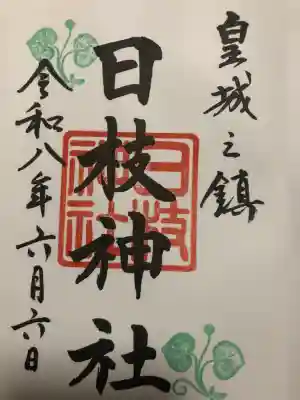 皇城之鎮
日枝神社
日枝神社
令和八年六月六日